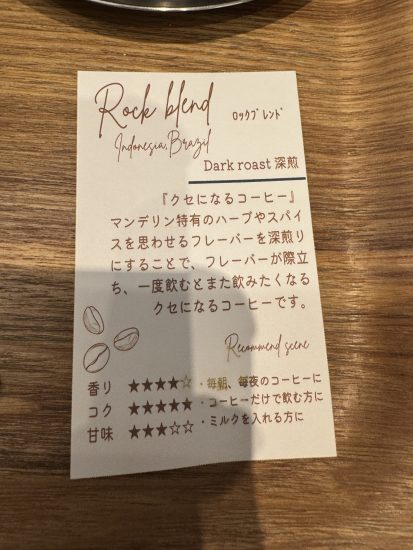 Rock blend
ﾛｯｸﾌﾞﾚﾝﾄﾞ
Indonesia, Brazil
Dark roast 深煎
『クセになるコーヒー』
マンデリン特有のハーブやスパイ
スを思わせるフレーバーを深煎り
にすることで、フレーバーが際立
ち、一度飲むとまた飲みたくなる
クセになるコーヒーです。
Recommend scene
香り ★★★★☆ ・毎朝、毎夜のコーヒーに
コク ★★★★★ ・コーヒーだけで飲む方に
甘味 ★★★☆☆ ・ミルクを入れる方に